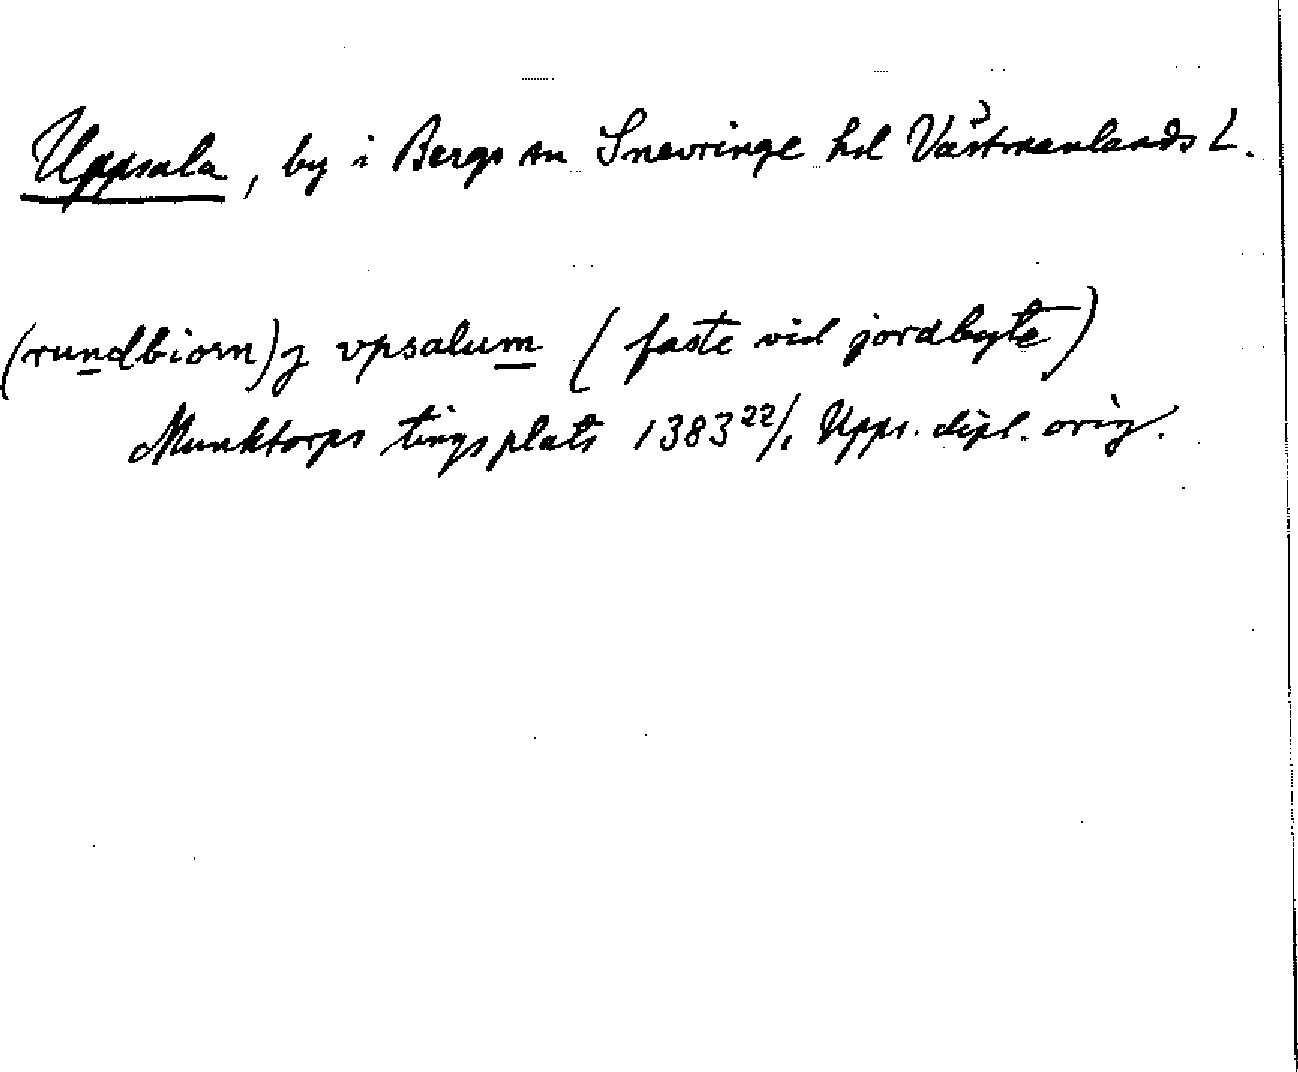 Uppsala, by i Bergs sn Snevringe hd Västmanlands L.
(rundbiorn) j vpsalum (faste vid jordbyte)
Munktorps tingsplats 1383 22/1 Upps. dipl. orig.